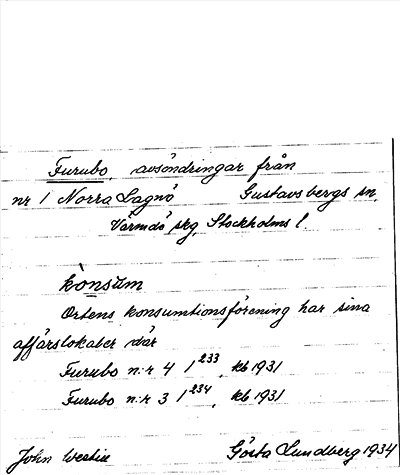 Furubo, avsöndringar från
nr 1 Norra Lagnö Gustavsbergs sn,
Värmdö skg, Stockholms l.
konsum
Ortens konsumtionsförening har sina
affärslokaler där
Furubo n:r 4 1 233, kb 1931
Furubo n:r 3 1 234, kb 1931
John Gösta Lundberg 1934